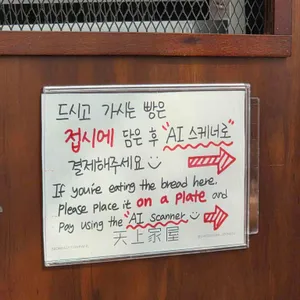 드시고 가시는 빵은
접시에 담은 후 "AI 스케너로"
결제해주세요
If you're eating the bread here.
Please place it on a plate and
Pay using the "AI scanner"
天上家屋